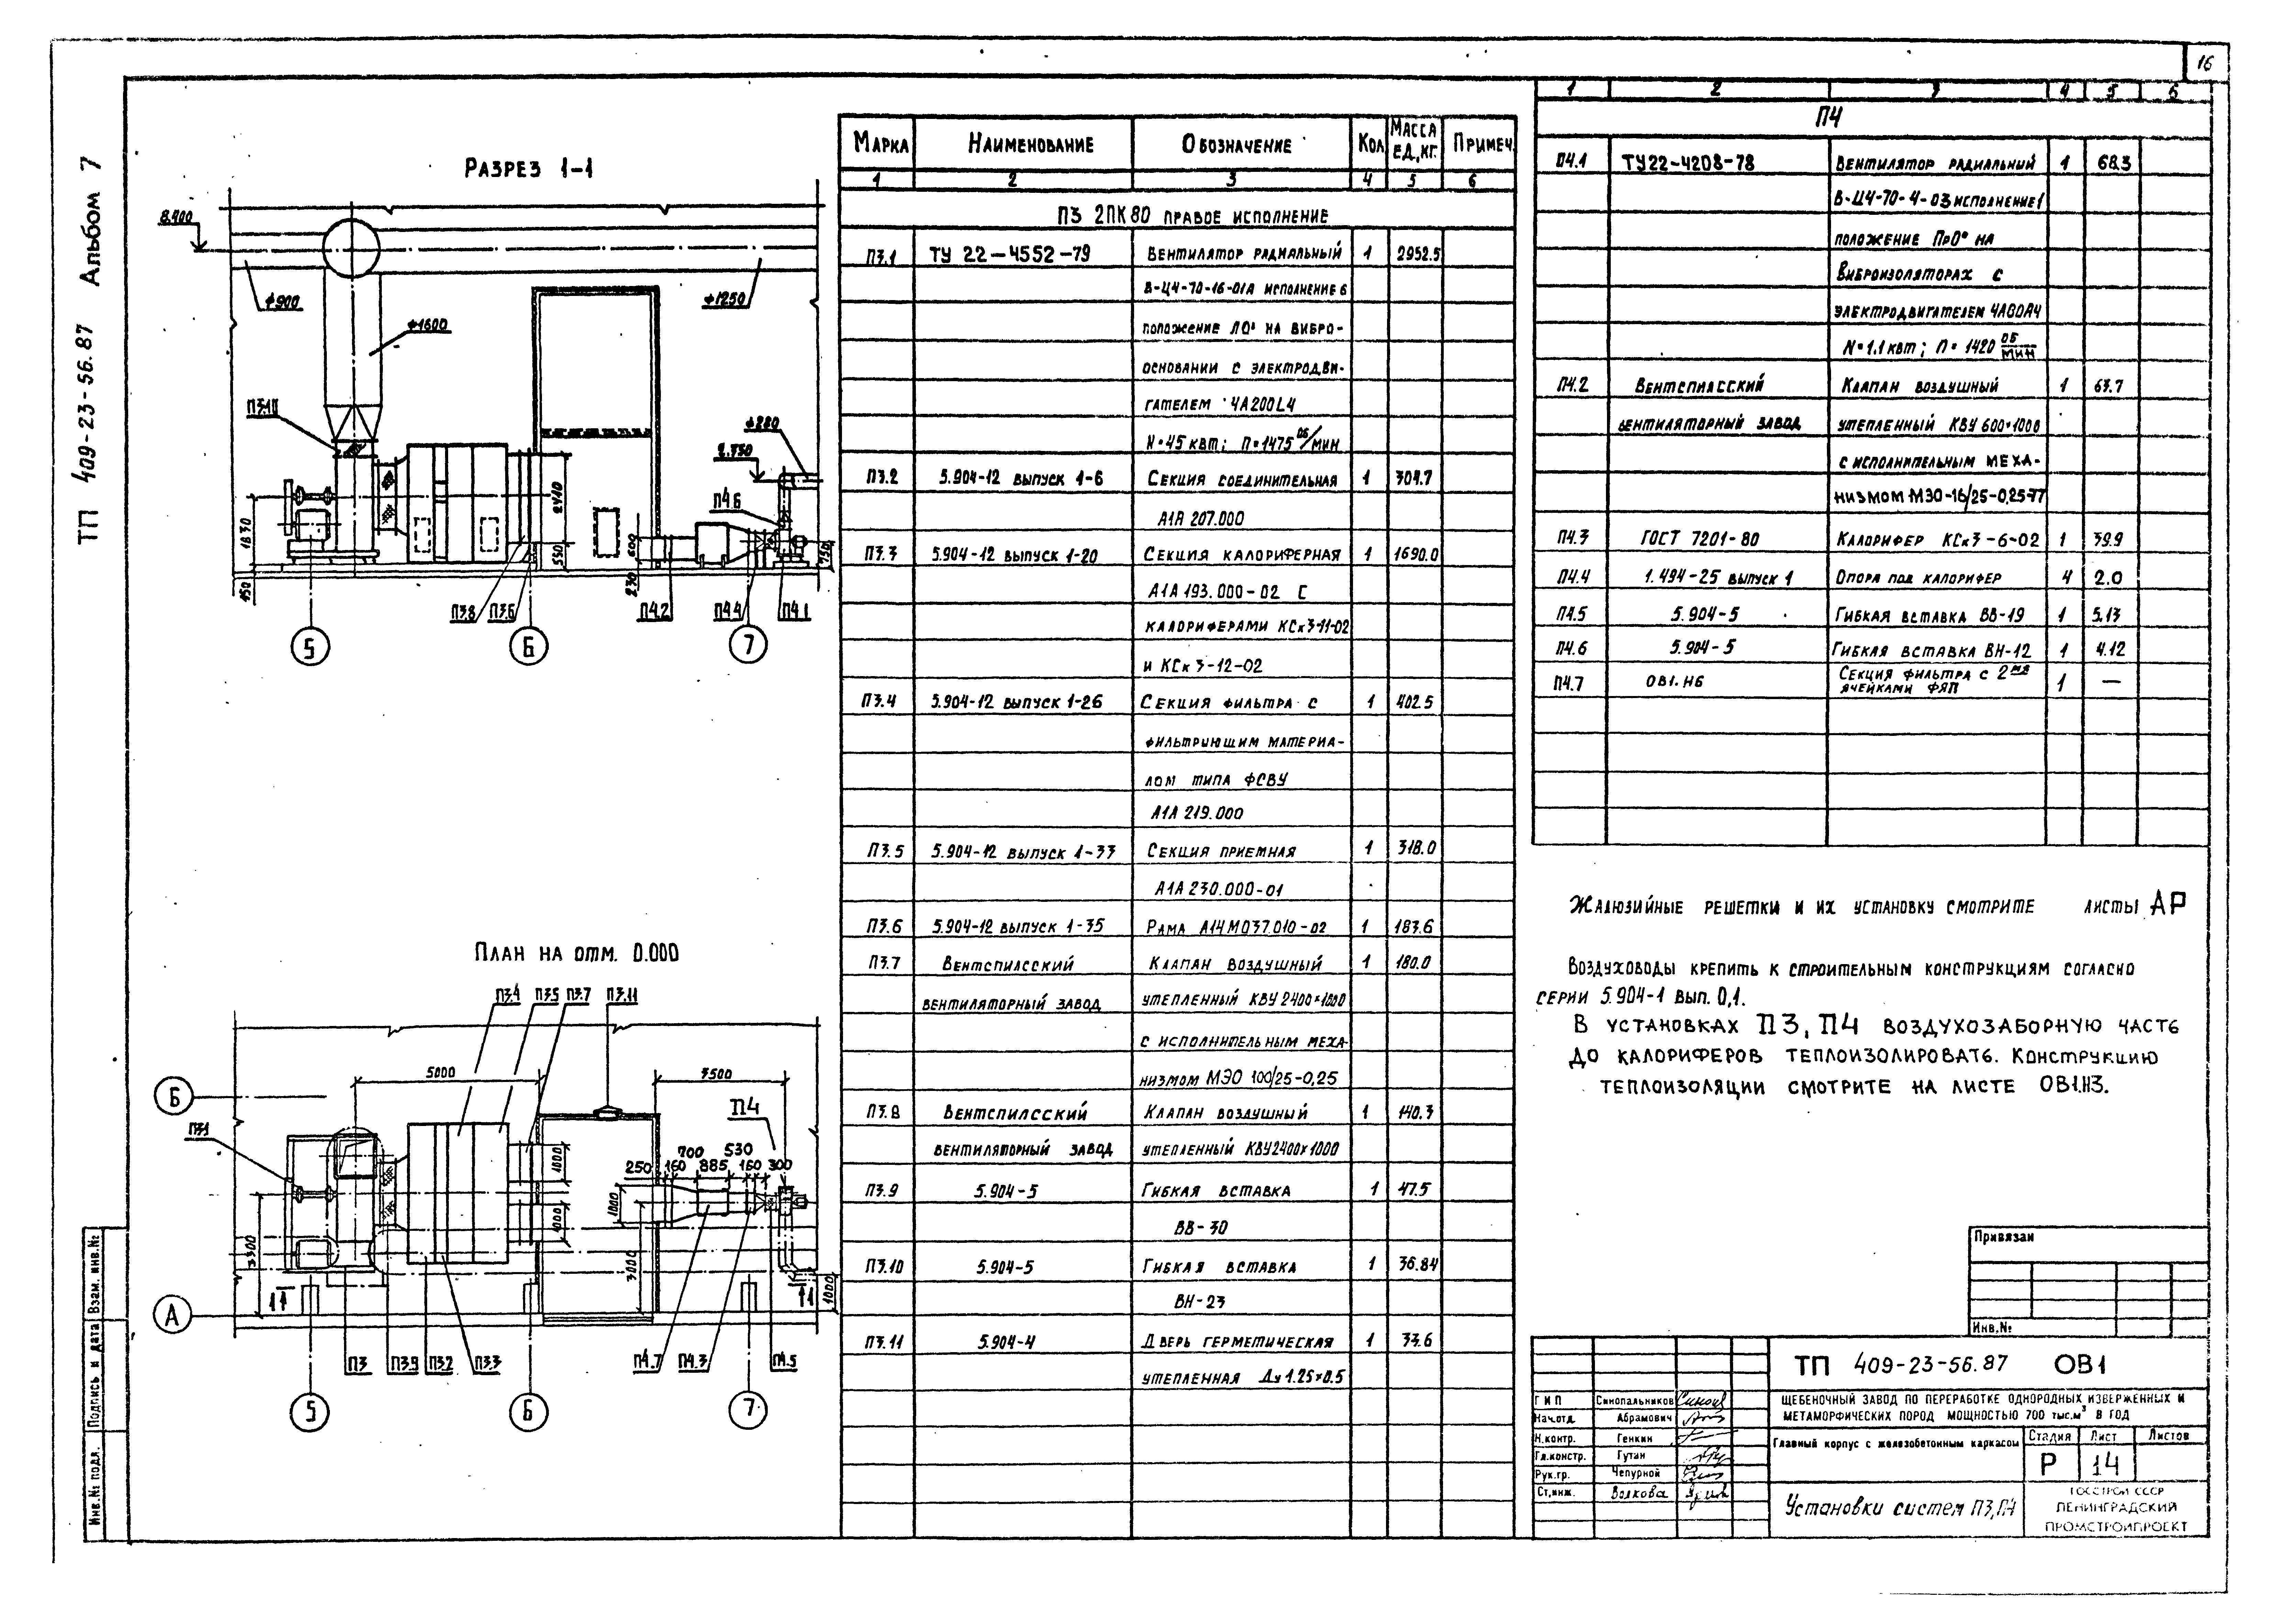 16
ТП 409-23-56.87 Альбом 7
Разрез 1-1
8.400
ф900
ф1250
ф1600
П3.10
ф280
2.730
П4.6
1830
150
2440
550
600
230
250
П3.8
П3.6
П4.2
П4.4
П4.1
5
6
7
План на отм. 0.000
П3.4
П3.5
П3.7
П3.11
5000
3500
Б
П4
П3.1
700
530
250
160
885
160
300
1000
1000
1000
3300
3000
1000
1
1
А
П3
П3.9
П3.2
П3.3
П4.7
П4.3
П4.5
5
6
7
Марка Наименование Обозначение Кол Масса ед,кг. Примеч.
1 2 3 4 5 6
П3 2ПК80 правое исполнение
П3.1 ТУ 22-4552-79 Вентилятор радиальный 1 2952.5
В-Ц4-70-16-01А исполнение 6
положение Л0° на вибро-
основании с электродви-
гателем 4А200L4
N=45 квт; П=1475 об/мин
П3.2 5.904-12 выпуск 1-6 Секция соединительная 1 304.7
А1А 207.000
П3.3 5.904-12 выпуск 1-20 Секция калориферная 1 1690.0
А1А 193.000-02 с
калориферами КСк3-11-02
и КСк 3-12-02
П3.4 5.904-12 выпуск 1-26 Секция фильтра с 1 402.5
фильтрующим материа-
лом типа ФСВУ
А1А 219.000
П3.5 5.904-12 выпуск 1-33 Секция приемная 1 318.0
А1А 230.000-01
П3.6 5.904-12 выпуск 1-35 Рама А14М037.010-02 1 183.6
П3.7 Вентспилсский Клапан воздушный 1 180.0
вентиляторный завод утепленный КВУ 2400×1800
с исполнительным меха-
низмом МЭО 100/25-0,25
П3.8 Вентспилсский Клапан воздушный 1 140.3
вентиляторный завод утепленный КВУ2400×1000
П3.9 5.904-5 Гибкая вставка 1 47.5
ВВ-30
П3.10 5.904-5 Гибкая вставка 1 36.84
ВН-23
П3.11 5.904-4 Дверь герметическая 1 33.6
утепленная Ду 1.25×0.5
1 2 3 4 5 6
П4
П4.1 ТУ22-4208-78 Вентилятор радиальный 1 68.3
В-Ц4-70-4-03 исполнение 1
положение Пр0° на
виброизоляторах с
электродвигателем 4А80А4
N=1.1 квт; П=1420 об/мин
П4.2 Вентспилсский Клапан воздушный 1 63.7
вентиляторный завод утепленный КВУ 600×1000
с исполнительным меха-
низмом МЭО-16/25-0,25-77
П4.3 ГОСТ 7201-80 Калорифер КСк3-6-02 1 39.9
П4.4 1.494-25 выпуск 1 Опора под калорифер 4 2.0
П4.5 5.904-5 Гибкая вставка ВВ-19 1 5.13
П4.6 5.904-5 Гибкая вставка ВН-12 1 4.12
П4.7 ОВ1.Н6 Секция фильтра с 2мя ячейками ФЯП 1 —
Жалюзийные решетки и их установку смотрите листы АР
Воздуховоды крепить к строительным конструкциям согласно
серии 5.904-1 вып. 0,1.
В установках П3, П4 воздухозаборную часть
до калориферов теплоизолировать. Конструкцию
теплоизоляции смотрите на листе ОВ1.Н3.
Привязан
Инв.№
ТП 409-23-56.87 ОВ1
Щебеночный завод по переработке однородных изверженных и
метаморфических пород мощностью 700 тыс.м³ в год
Главный корпус с железобетонным каркасом
Стадия Лист Листов
Р 14
Установки систем П3,П4
Госстрой СССР
Ленинградский
Промстройпроект
ГИП Синопальников
Нач.отд. Абрамович
Н.контр. Генкин
Гл.констр. Гутан
Рук.гр. Чепурной
Ст.инж. Волкова
Инв.№ подл. Подпись и дата Взам. инв.№